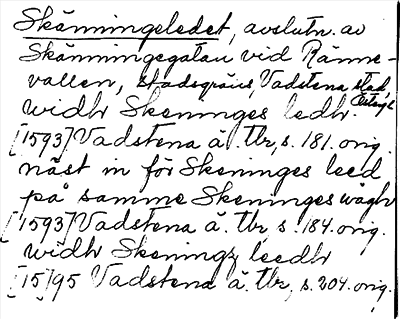 Skänningeledet, avslutn. av
Skänningegatan vid Ränne-
vallen, stadsgräns Vadstena stad,
Östergl.
widh Skeninges ledh.
[1593] Vadstena ä. Tbr, s. 181. orig.
näst in för Skeninges leed
på samme Skeninges wägh
[1593] Vadstena ä. Tbr, s. 184. orig.
widh Skening; leedh
[15]95 Vadstena ä. Tbr, s. 204. orig.